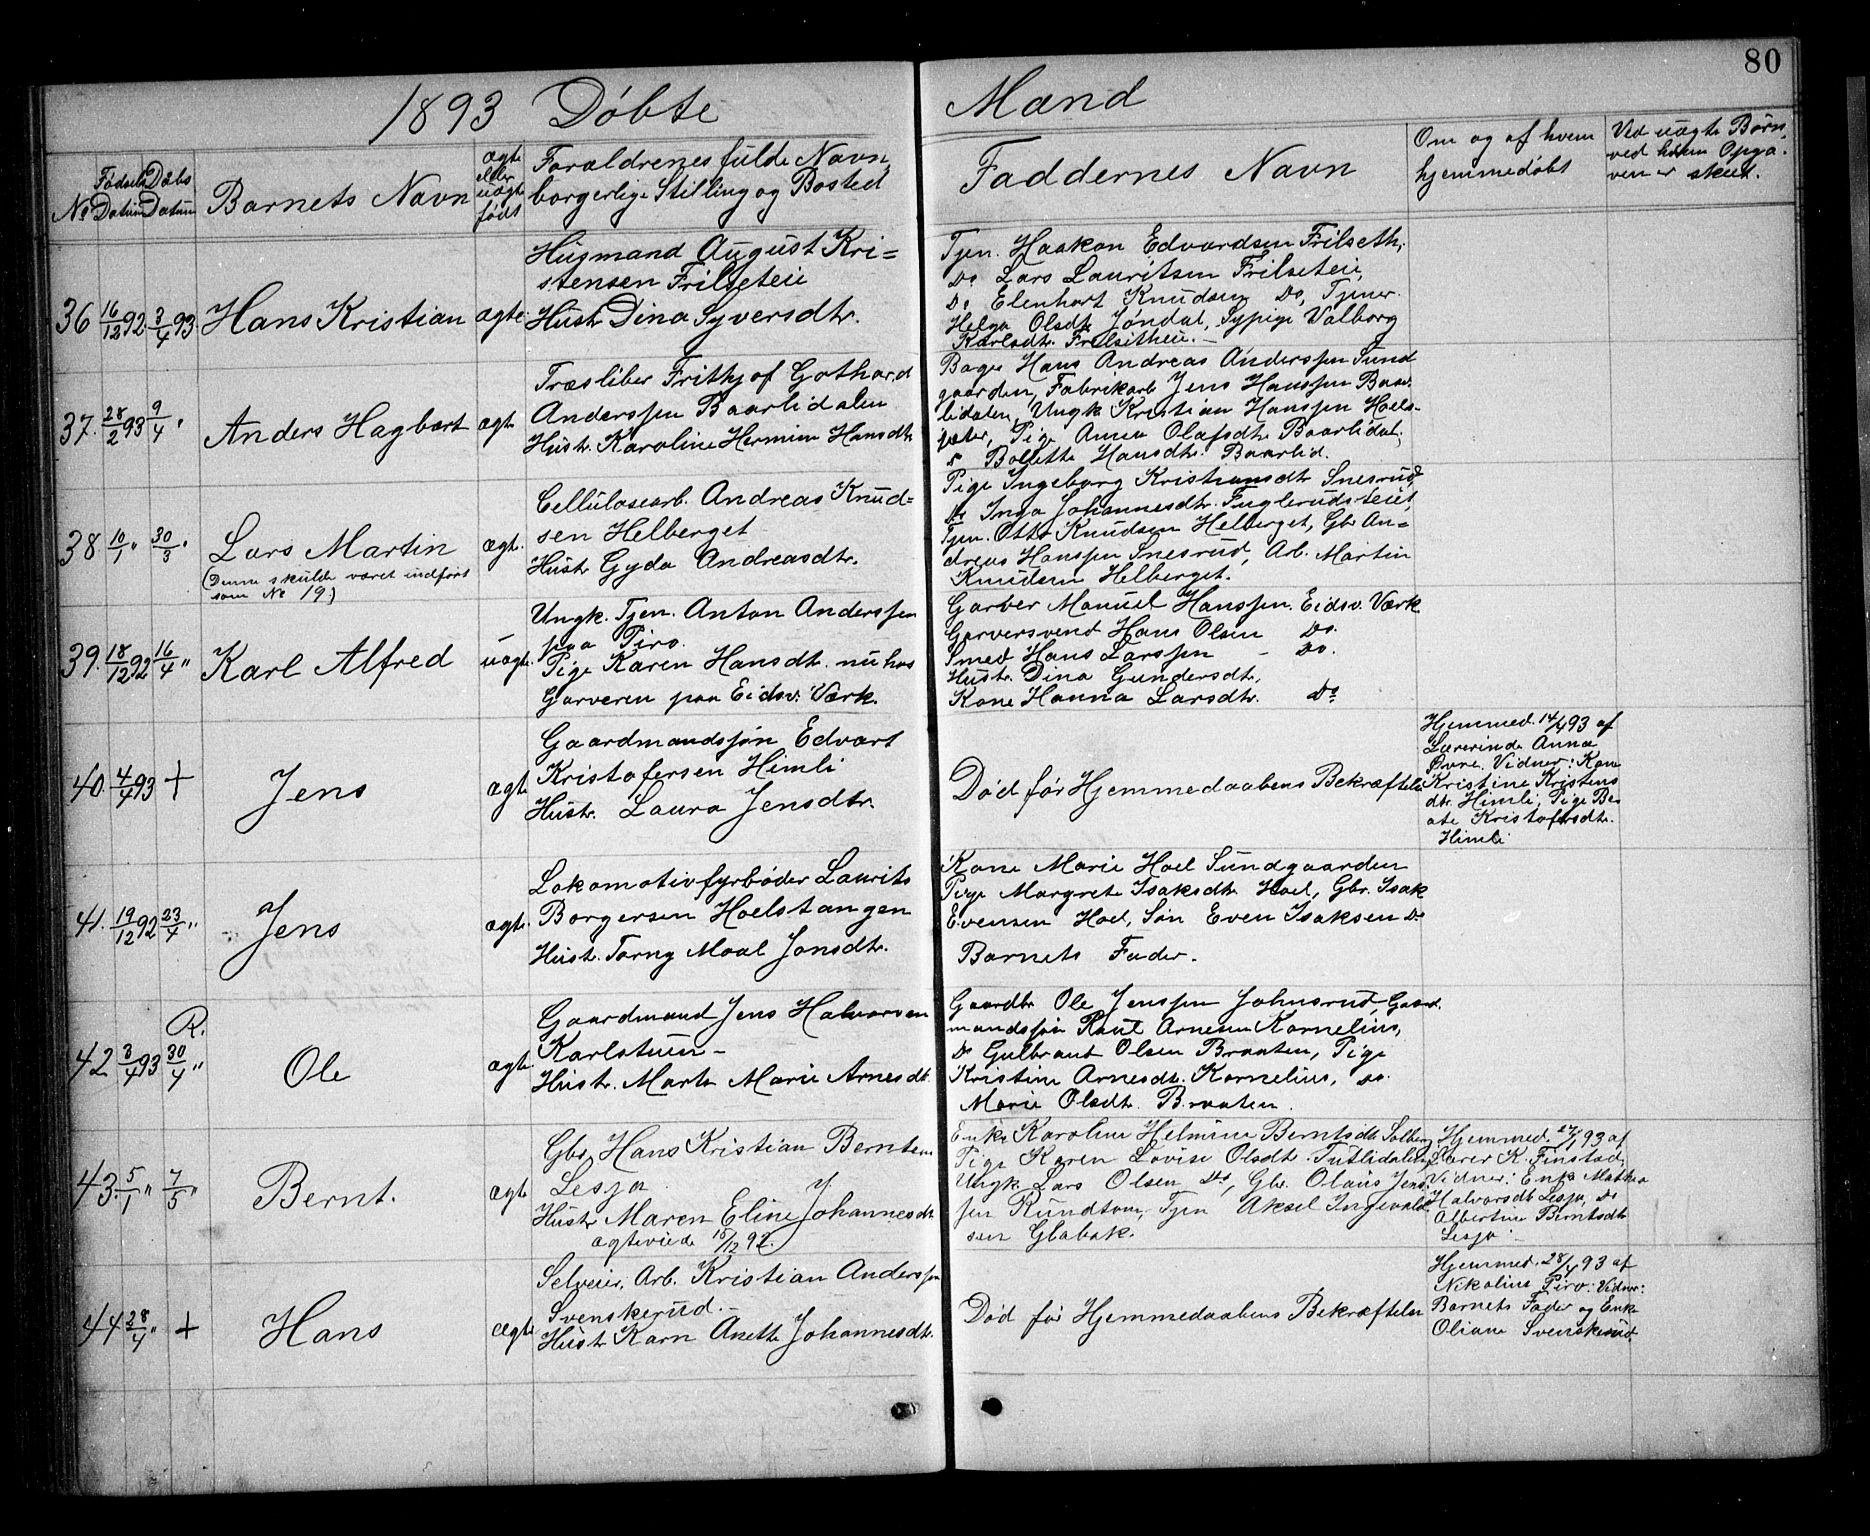 80
1893 Döbte Mænd
No
Fødsels Datum
Døbs Datum
Barnets Navn
ægte eller uægte født
Forældrenes fulde Navn,
borgerlige Stilling og Bosted
Faddernes Navn
Om og af hvem
hjemmedøbt
Ved uægte Børn,
ved hvem Opga-
ven er skeet.
36 16/12 92 3/4 93 Hans Kristian ægte
Husmand August Kri=
stensen Frilseteie
Hustr. Dina Syversdtr.
Tjen. Haakon Edvardsen Frilseth,
Do Lars Lauritsen Frilseteie,
Do Elenhart Knudsen Do, Tjener
Helga Olsdtr Jøndal, Sypige Valborg
Karlsdtr.
37. 28/2 93 9/4 " Anders Hagbart ægte
Træsliber Frithjof Gothard
Anderssen Baarlidalen
Hustr. Karoline Hermine Hansdtr
Bager Hans Andreas Anderssen Sund
gaarden, Fabrikarb Jens Hanssen Baar-
lidalen, Ungk Kristian Hanssen Hoels-
Pige Anna Olafsdtr Baarlidal,
Bollette Hansdtr. Baarlid.
38. 10/1 " 30/3 " Lars Martin ægte.
(Denne skulde været indført
som No 19.)
Cellulosearb. Andreas Knud=
sen Helberget
Hustr Gyda Andreasdtr.
Pige Ingeborg Kristiansdtr Snesrud
Do Inga Johannesdtr. Fuglerudsteiet,
Tjen. Otto Knudsen Helberget, Gbr An=
dreas Hanssen Snesrud, Arb. Martin
Knudsen Helberget.
39. 18/12 92 16/4 " Karl Alfred uægte.
Ungk. Tjen. Anton Anderssen
paa Piro.
Pige Karen Hansdtr. nu hos
Garveren paa Eidsv. Værk.
Garver Manuel Hanssen. Eidsv. Værk
Garversvend Hans Olsen Do.
Smed Hans Larssen - Do.
Hustr. Dina Gundersdtr,
Kone Hanna Larsdtr. Do
40. 4/4 93 + Jens ægte
Gaardmandssøn Edvart
Kristofersen Himli
Hustr. Laura Jensdtr.
Død før Hjemmedaabens Bekræftelse
Hjemmed. 14/4 93 af
Lærerinde Anna
Øvre. Vidner: Kone
Kristine Kristens
dtr. Himli, Pige Be
ate Kristofersdtr.
Himli
41. 19/12 92 23/4 " Jens ægte.
Lokomotivfyrbøder Laurits
Borgersen Hoelstangen
Hustr. Torny Moal Jonsdtr.
Kone Marie Hoel Sundgaarden
Pige Margrete Isaksdtr Hoel, Gbr. Isak
Evensen Hoel, Søn Even Isaksen Do
Barnets Fader.
R.
42 3/4 93 30/4 " Ole ægte
Gaardmand Jens Halvorsen
Karlstuen -
Hustr. Marte Marie Arnesdtr.
Gaardbr Ole Jenssen Johnsrud, Gaard.
mandssøn Paul Arnesen Kornelius,
Do Gulbrand Olsen Braaten, Pige
Kristine Arnesdtr. Kornelius, Do.
Marie Olsdtr. Braaten.
43. 5/1 " 7/5 " Bernt. ægte
Gbr, Hans Kristian Berntsen
Lesja
Hustr Maren Eline Johannesdtr
ægteviede 10/12 92.
Enke Karoline Helmine Berntsdtr Solberg
Pige Karen Lovise Olsdtr. Tutlidalen,
Ungk Lars Olsen Do, Gbr. Olaus Jens-
sen Rundtom, Tjen Aksel Ingevald
sen Globak.
Hjemmed. 27/1 93 af
Lærer K. Finstad,
Vidner: Enke Mathea
Halvorsdtr Lesja, Do
Albertine Berntsdtr
Lesja
44 28/4 " + Hans ægte
Selveier, Arb. Kristian Anderssen
Svenskerud. -
Hustr Karn Anette Johannesdtr.
Død før Hjemmedaabens Bekræftelse
Hjemmed. 28/4 93 af
Nikoline Piro: Vidner:
Barnets Fader og Enke
Oliane Svenskerud.